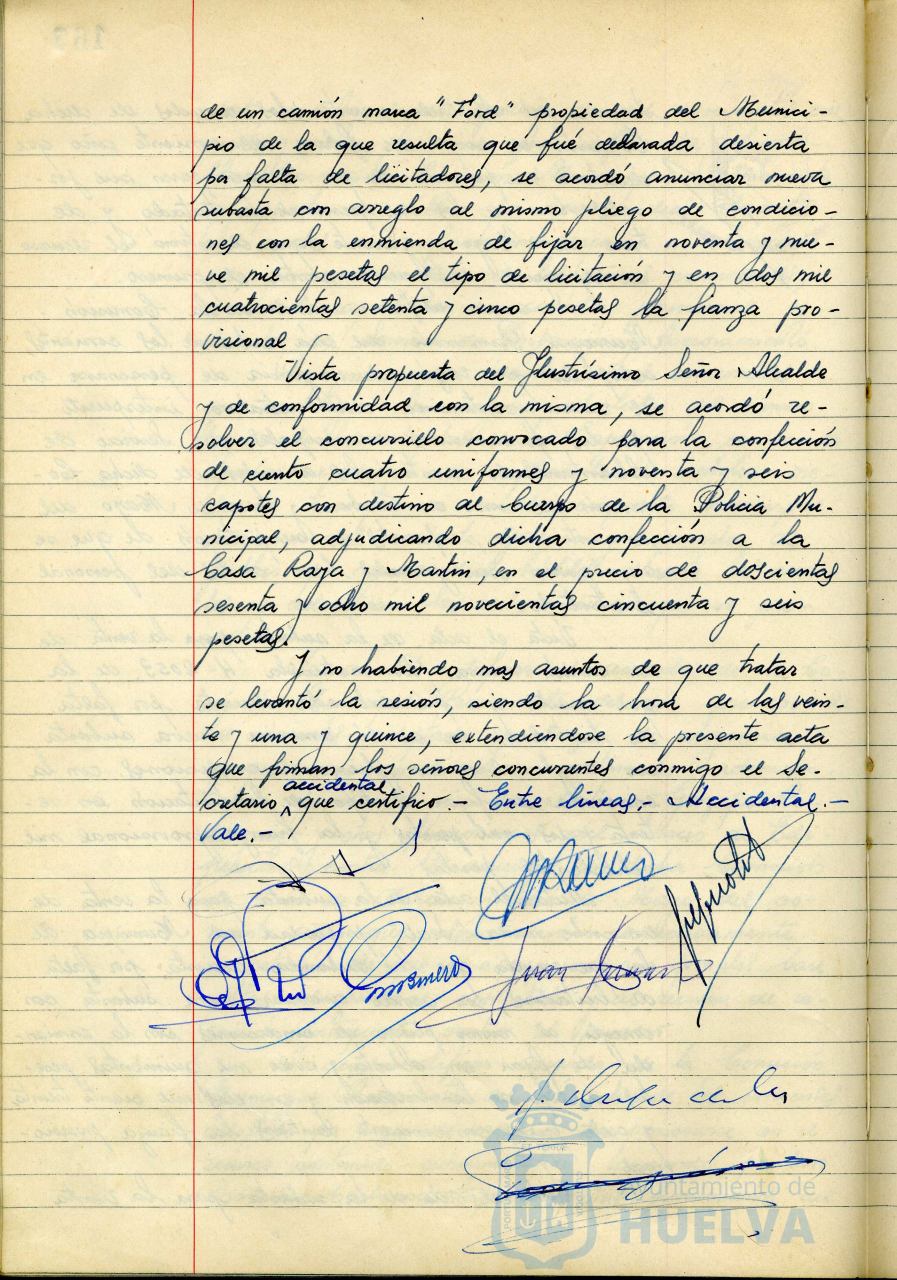 de un camión marca "Ford" propiedad del Munici-
pio de la que resulta que fué declarada desierta
por falta de licitadores, se acordó anunciar nueva
subasta con arreglo al mismo pliego de condicio-
nes con la enmienda de fijar en noventa y nue-
ve mil pesetas el tipo de licitación y en dos mil
cuatrocientas setenta y cinco pesetas la fianza pro-
visional
Vista propuesta del Ilustrísimo Señor Alcalde
y de conformidad con la misma, se acordó re-
solver el concursillo convocado para la confección
de ciento cuatro uniformes y noventa y seis
capotes con destino al Cuerpo de la Policia Mu-
nicipal, adjudicando dicha confección a la
Casa Raya y Martin, en el precio de doscientas
sesenta y ocho mil novecientas cincuenta y seis
pesetas.
Y no habiendo mas asuntos de que tratar
se levantó la sesión, siendo la hora de las vein-
te y una y quince, extendiendose la presente acta
que firman los señores concurrentes conmigo el Se-
cretario accidental que certifico.- Entre líneas.- Accidental.-
Vale.-
Juan
Ayuntamiento de
HUELVA